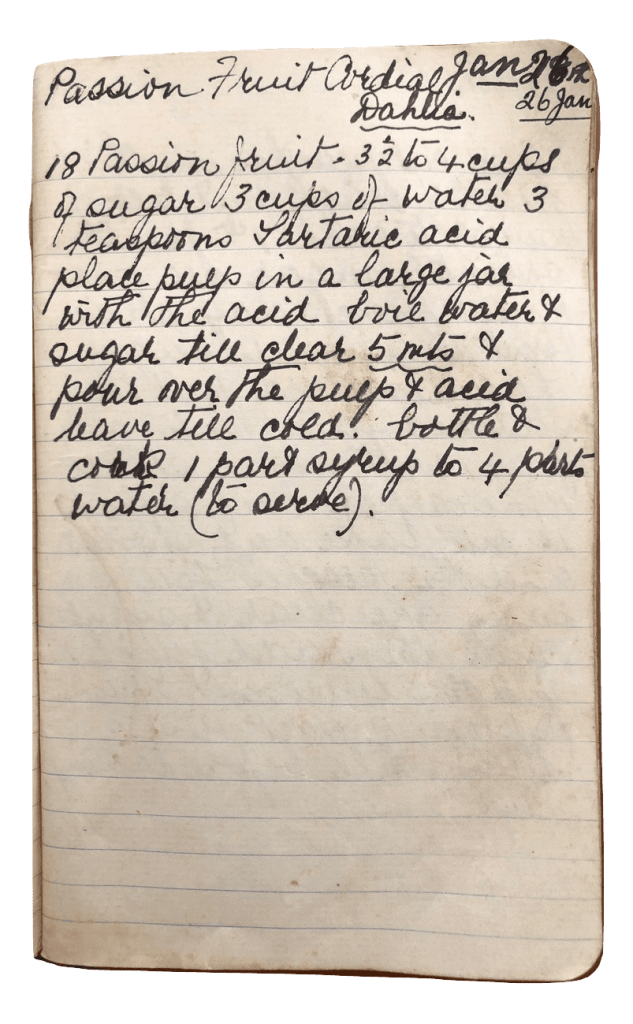 Passion Fruit Cordial Jan 26th
Dahlia. 26 Jan
18 Passion fruit. 3½ to 4 cups
of sugar 3 cups of water 3
teaspoons Tartaric acid
place pulp in a large jar
with the acid boil water &
sugar till clear 5 mts &
pour over the pulp & acid
leave till cold. bottle &
cork 1 part syrup to 4 parts
water (to serve).